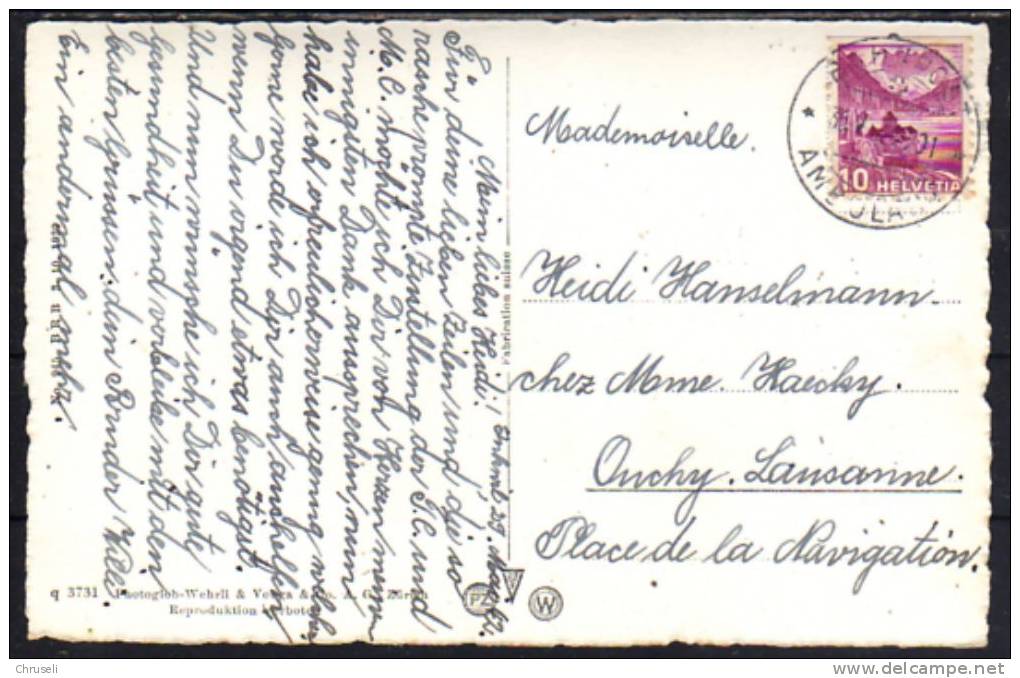 Entenb, 29. Mai 42.
Mein liebes Heidi!
Für deine lieben Zeilen und die so
rasche promte Zustellung der I.C. und
M.C. möchte ich Dir von Herzen meinen
innigsten Dank aussprechen, nun
habe ich erfreulicherweise genug welche,
gerne werde ich Dir auch aushelfen
wenn Du irgend etwas benötigst.
Und nun wünsche ich Dir gute
Gesundheit und verbleibe mit den
besten Grüssen dein Bruder Willi
Ein andermal mehr.
Mademoiselle.
Heidi Hanselmann.
chez Mme. Haecky.
Ouchy. Lausanne.
Place de la Navigation.
10 HELVETIA
AMBULANT
Fabrication suisse
q 3731 Photoglob-Wehrli & Vouga & Co. A. G. Zürich
Reproduktion verboten
PZ
W
Chruseli
www.delcampe.net